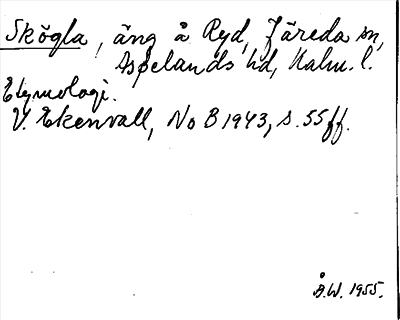 Skögla, äng å Ryd, Järeda sn,
Aspelands hd, Kalm. l.
Etymologi.
V. Ekenvall, NoB 1943, s. 55ff.
Å.W. 1955.